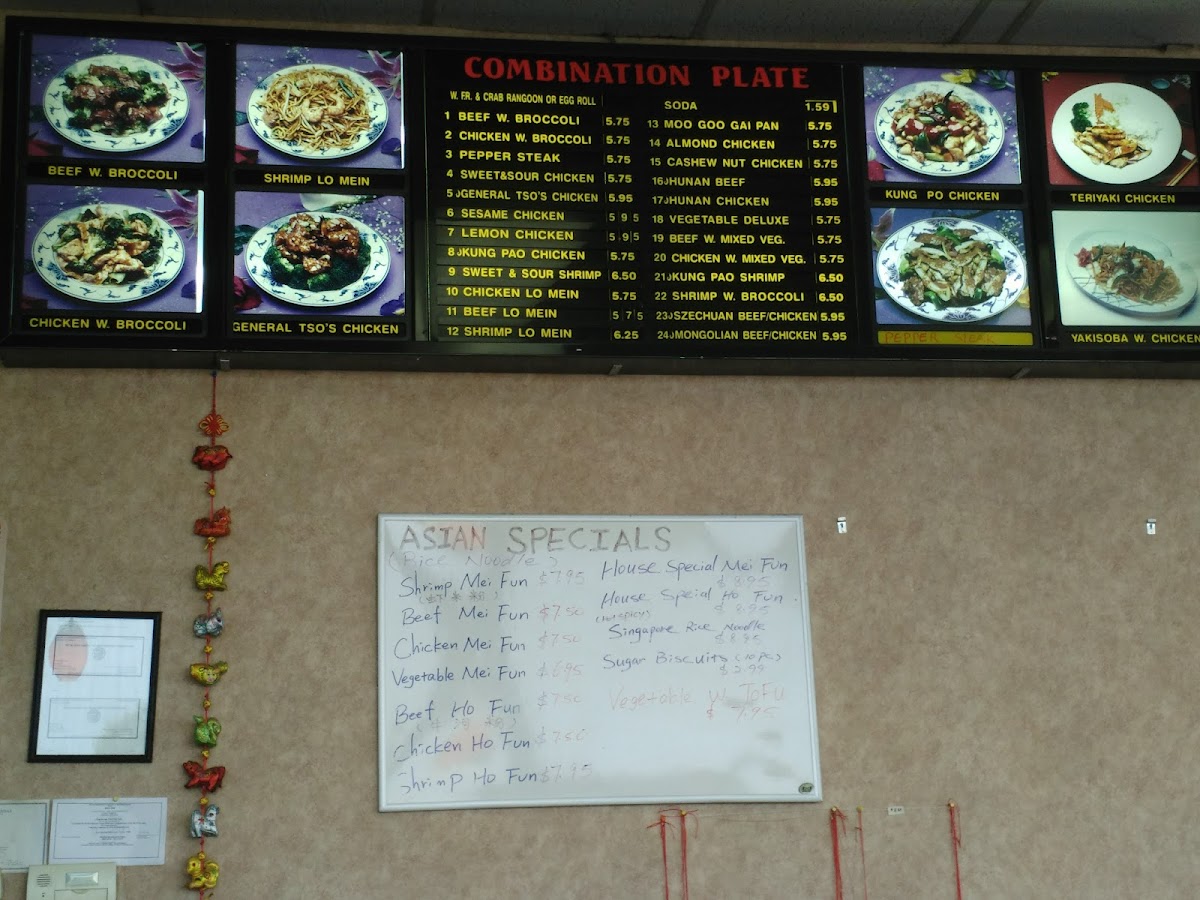 BEEF W. BROCCOLI
SHRIMP LO MEIN
CHICKEN W. BROCCOLI
GENERAL TSO'S CHICKEN
COMBINATION PLATE
W. FR. & CRAB RANGOON OR EGG ROLL
1 BEEF W. BROCCOLI 5.75
2 CHICKEN W. BROCCOLI 5.75
3 PEPPER STEAK 5.75
4 SWEET&SOUR CHICKEN 5.75
5 GENERAL TSO'S CHICKEN 5.95
6 SESAME CHICKEN 5 9 5
7 LEMON CHICKEN 5.95
8 KUNG PAO CHICKEN 5.75
9 SWEET & SOUR SHRIMP 6.50
10 CHICKEN LO MEIN 5.75
11 BEEF LO MEIN 5 7 5
12 SHRIMP LO MEIN 6.25
SODA 1.59
13 MOO GOO GAI PAN 5.75
14 ALMOND CHICKEN 5.75
15 CASHEW NUT CHICKEN 5.75
16 HUNAN BEEF 5.95
17 HUNAN CHICKEN 5.95
18 VEGETABLE DELUXE 5.75
19 BEEF W. MIXED VEG. 5.75
20 CHICKEN W. MIXED VEG. 5.75
21 KUNG PAO SHRIMP 6.50
22 SHRIMP W. BROCCOLI 6.50
23 SZECHUAN BEEF/CHICKEN 5.95
24 MONGOLIAN BEEF/CHICKEN 5.95
KUNG PO CHICKEN
TERIYAKI CHICKEN
PEPPER STEAK
YAKISOBA W. CHICKEN
ASIAN SPECIALS
(Rice Noodle)
Shrimp Mei Fun $7.95
Beef Mei Fun $7.50
Chicken Mei Fun $7.50
Vegetable Mei Fun $6.95
Beef Ho Fun $7.50
Chicken Ho Fun $7.50
Shrimp Ho Fun $7.95
House Special Mei Fun
$8.95
House Special Ho Fun
$8.95
Singapore Rice Noodle
$8.95
Sugar Biscuits (10 pc)
$2.99
Vegetable w ToFu
$7.95